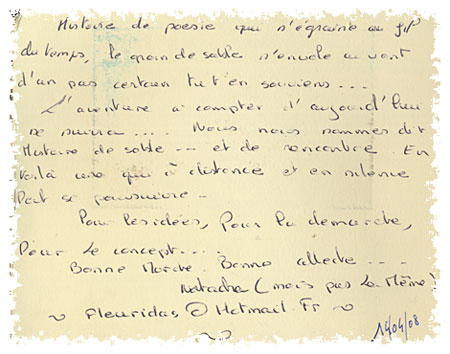 Histoire de poesie qui s'égraine au fil
du temps, le grain de sable s'envole au vent
d'un pas certain tu t'en souviens ...
L'aventure à compter d'aujourd'hui
se suivra .... Nous nous sommes dit
Histoire de sable --- et de rencontre. En
voilà une qui à distance et en silence
Doit se poursuivre -
Pour les idées, Pour la demarche,
Pour le concept....
Bonne Marche. Bonne ....
Natacha (mais pas la Même!
~ Fleuridas @ Hotmail.Fr ~
14/04/08